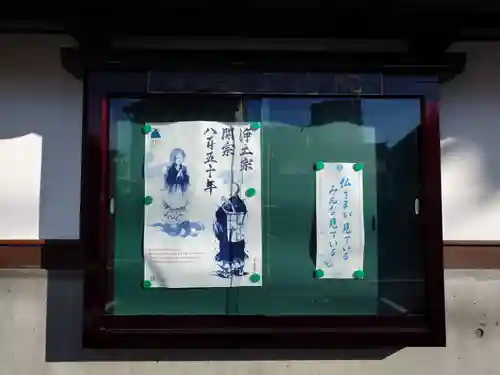 浄土宗
開宗
八百五十年
仏さまが見ている
みんな見ている